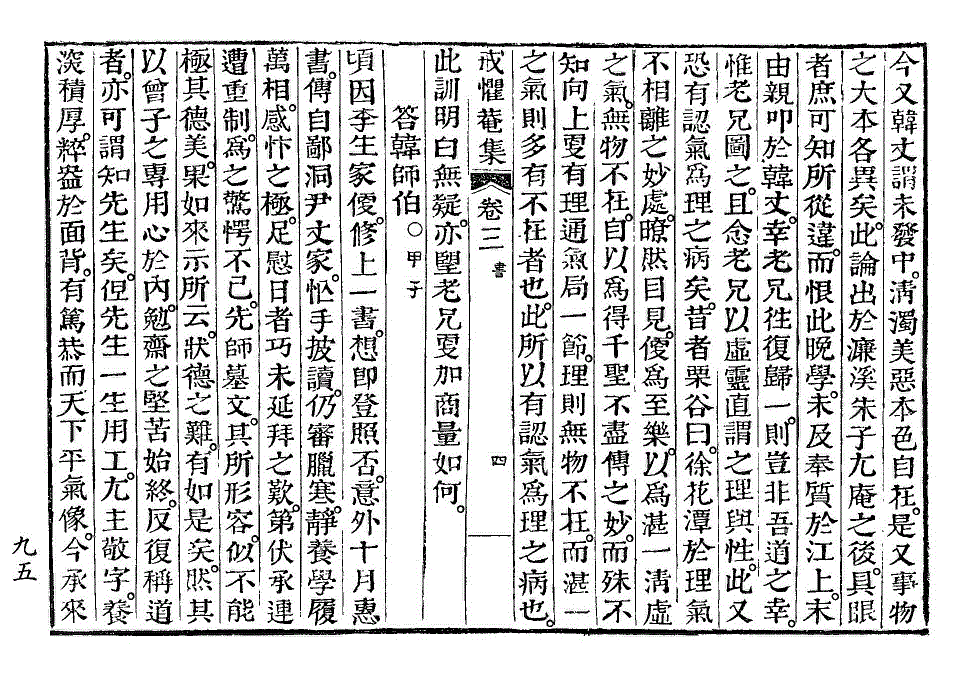 今又韓丈謂未發中。淸濁美惡本色自在。是又事物
之大本各異矣。此論出於濂溪朱子尤庵之後。具眼
者庶可知所從違。而恨此晩學。未及奉質於江上。末
由親叩於韓丈。幸老兄往復歸一。則豈非吾道之幸。
惟老兄圖之。且念老兄以虛靈直謂之理與性。此又
恐有認氣爲理之病矣。昔者栗谷曰。徐花潭於理氣
不相離之妙處。瞭然目見。優爲至樂。以爲湛一淸虛
之氣。無物不在。自以爲得千聖不盡傳之妙。而殊不
知向上更有理通氣局一節。理則無物不在。而湛一
之氣則多有不在者也。此所以有認氣爲理之病也。
戒懼菴集 卷三 書 四
此訓明白無疑。亦望老兄更加商量如何。
答韓師伯○甲子
頃因李生家便。修上一書。想卽登照否。意外十月惠
書。傳自鄙洞尹丈家。忙手披讀。仍審臘寒。靜養學履
萬相。感忭之極。足慰日者巧未延拜之歎。第伏承連
遭重制。爲之驚愕不已。先師墓文。其所形容。似不能
極其德美。果如來示所云。狀德之難。有如是矣。然其
以曾子之專用心於內。勉齋之堅苦始終。反復稱道
者。亦可謂知先生矣。但先生一生用工。尤主敬字。養
深積厚。粹盎於面背。有篤恭而天下平氣像。今承來
九五